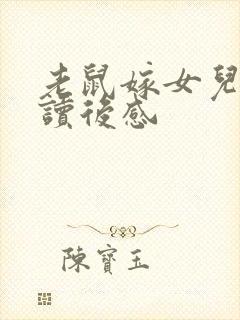 老鼠嫁女兒
讀後感
陳寶玉